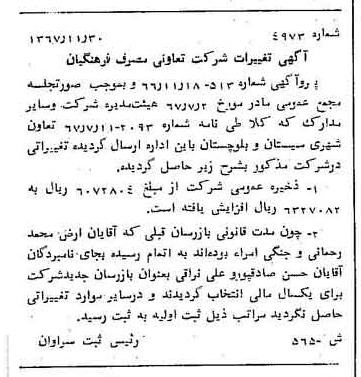 شماره ۴۹۷۳ ۱۳۶۷/۱۱/۳۰
آگهی تغییرات شرکت تعاونی مصرف فرهنگیان
پروآگهی شماره ۵۱۳-۶۶/۱۱/۱۸ و بموجب صورتجلسه
مجمع عمومی مادر مورخ ۶۷/۷/۲ هیئت‌مدیره شرکت وسایر
مدارك که کلا طی نامه شماره ۲۰۹۳-۶۷/۷/۱۱ تعاون
شهری سیستان و بلوچستان باین اداره ارسال گردیده تغییراتی
درشرکت مذکور بشرح زیر حاصل گردیده.
۱- ذخیره عمومی شرکت از مبلغ ۶۰۷۲۸۰۴ ریال به
۶۳۲۷۰۸۲ ریال افزایش یافته است.
۲- چون مدت قانونی بازرسان قبلی که آقایان ارض محمد
رحمانی و جنگی امراء بوده‌اند به اتمام رسیده بجای نامبردگان
آقایان حسن صادقپورو علی نراقی بعنوان بازرسان جدیدشرکت
برای یکسال مالی انتخاب گردیدند و درسایر موارد تغییراتی
حاصل نگردید مراتب ذیل ثبت اولیه به ثبت رسید.
ش -۵۶۵ رئیس ثبت سراوان